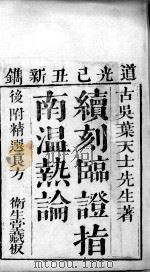 道光己丑新鐫
古吳葉天士先生著
續刻臨證指
南温熱論
後附精選良方 衛生堂藏板